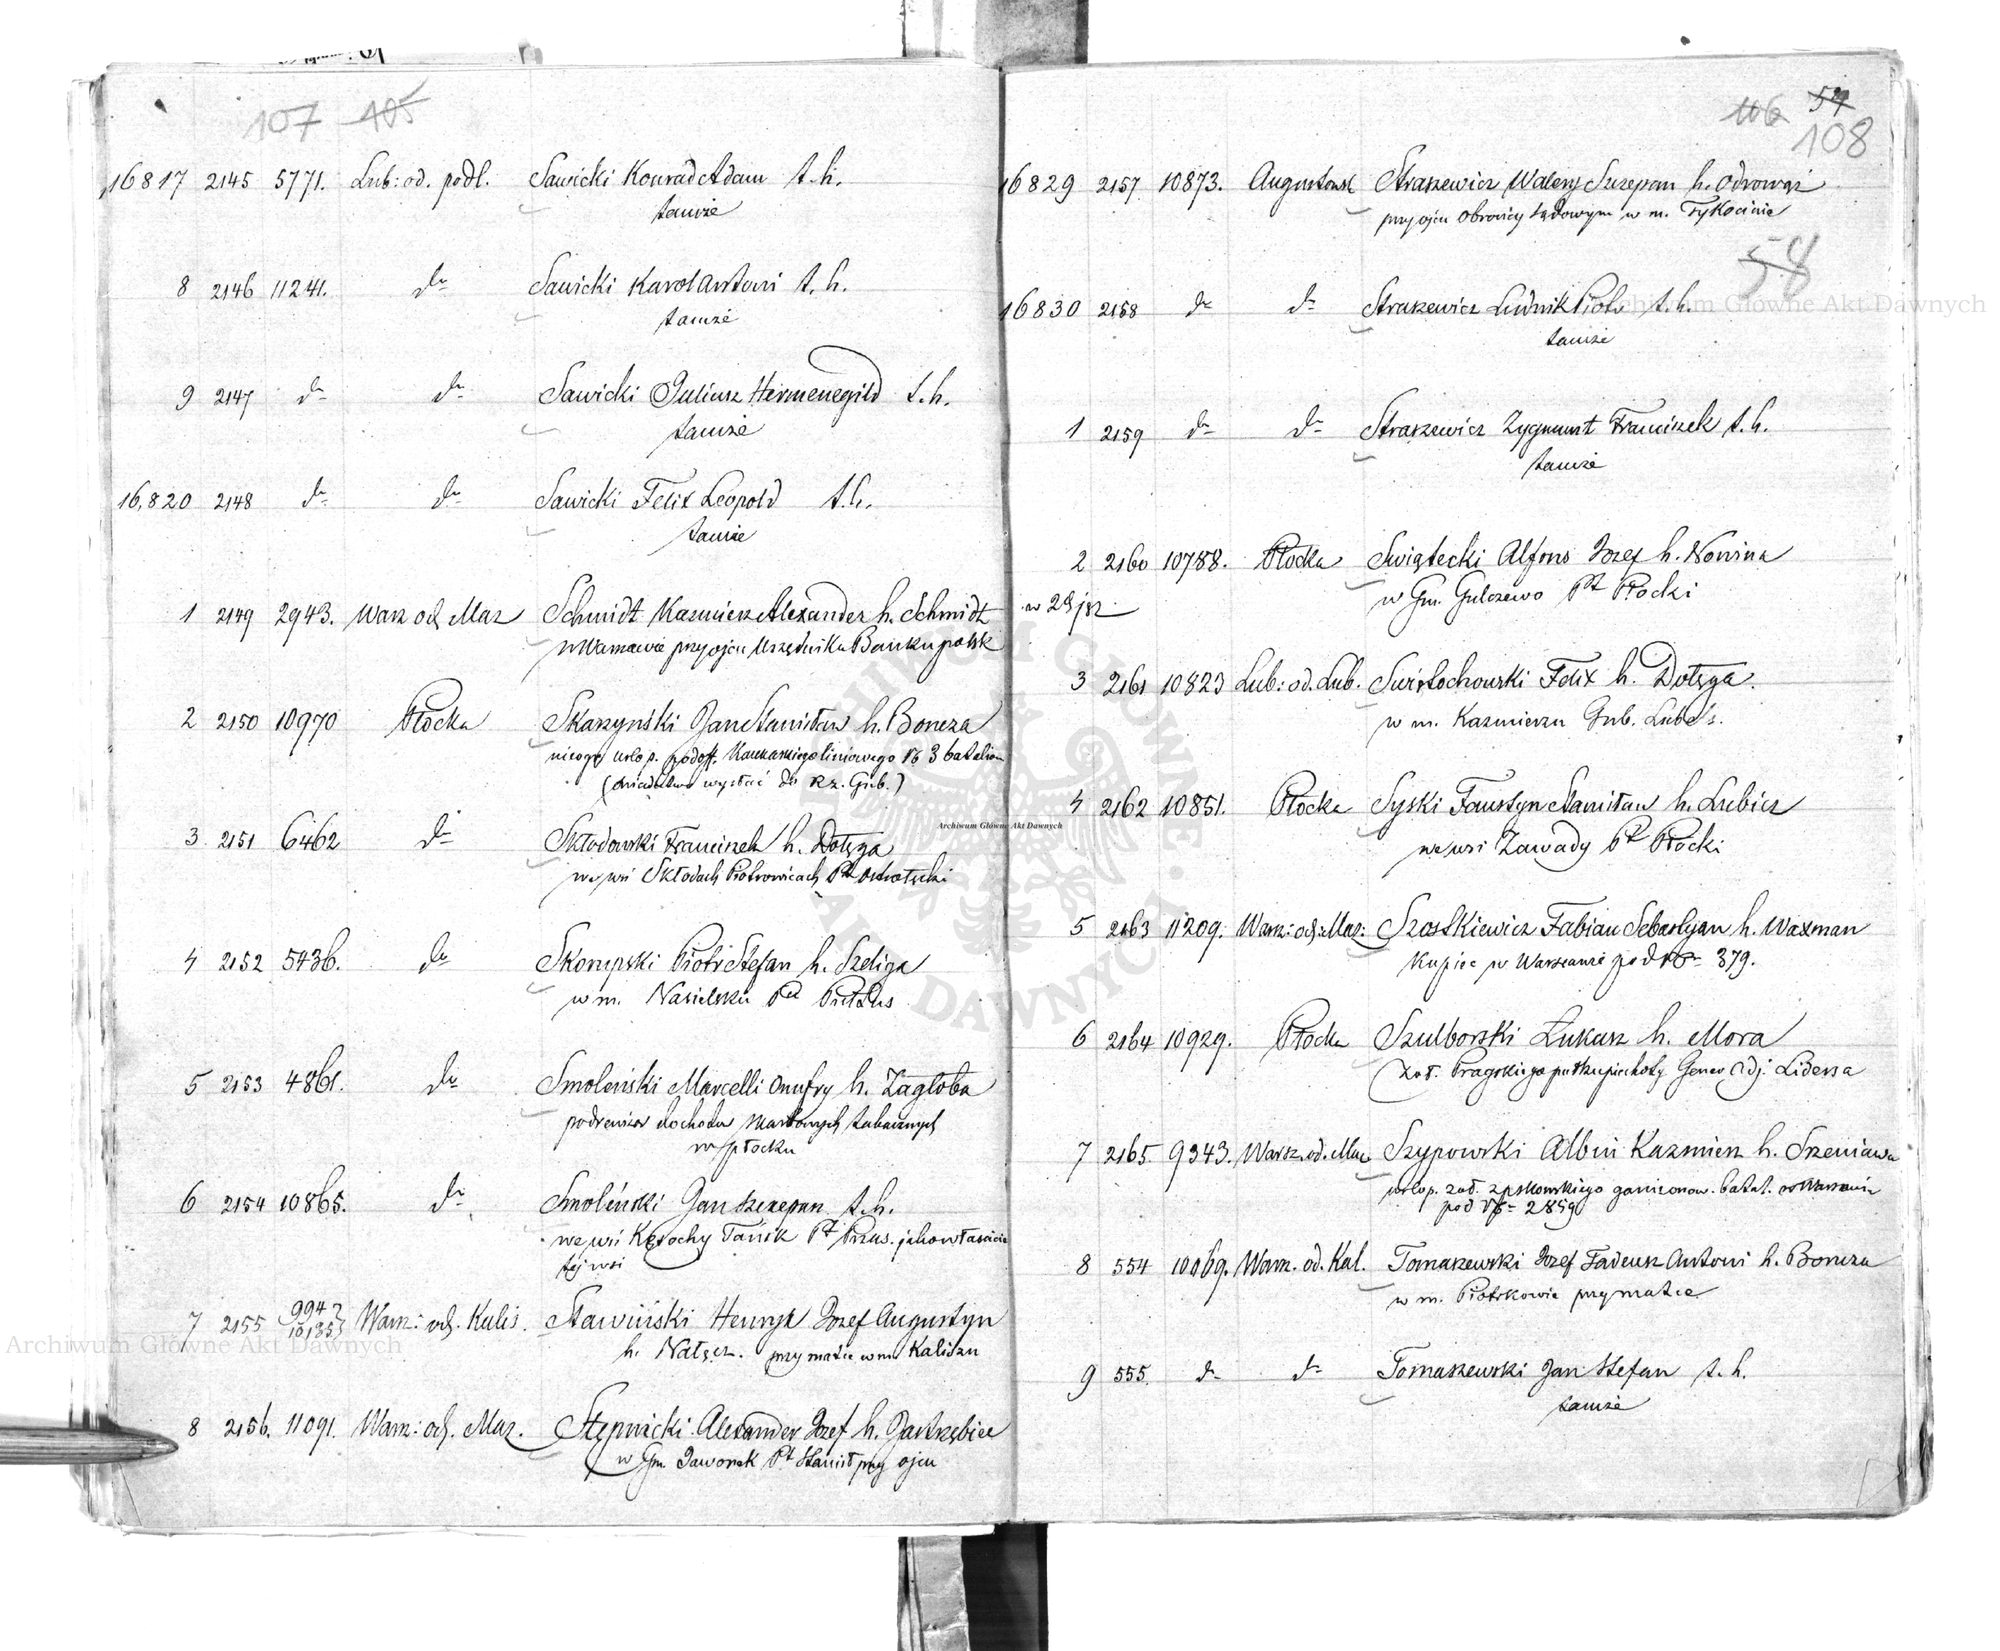 107 105
16817 2145 5771. Lub: od. podl. Sawicki Konrad Adam t. h.
tamże
8 2146 11241. do Sawicki Karol Antoni t. h.
tamże
9 2147 do do Sawicki Juliusz Hermenegild t. h.
tamże
16,820 2148 do do Sawicki Felix Leopold t. h.
tamże
1 2149 2943. Warsz od Maz Schmidt Kazimierz Alexander h. Schmidt
w Warszawie przy ojcu Urzędniku Banku polsk
2 2150 10970 Płocka Skarzyński Jan Stanisław h. Boncza
urlop. podoff. Kaukaskiego liniowego № 3 batalion
( wysłać do Rz. Gub.)
3 2151 6462 do Skłodowski Franciszek h. Dołęga
we wsi Skłodach Piotrowicach Pt Ostrołęcki
4 2152 5436. do Skorupski Piotr Stefan h. Szeliga
w m. Nasielsku Pt Pułtus
5 2153 4861. do Smoleński Marcelli Onufry h. Zagłoba
podrewizor dochodów skarbowych tabacznych
w Płocku
6 2154 10865. do Smoleński Jan Szczepan t. h.
we wsi Kęsochy Tańsk Pt Przas. jako właściciel
tej wsi
7 2155 9947 10135 Warsz: od. Kalis. Stawiński Henryk Jozef Augustyn
h. Nałęcz. przy matce w m Kaliszu
8 2156. 11091. Warsz: od. Maz. Stępnicki Alexander Jozef h. Jastrzębiec
w Gm. Jaworek Pt Stanisł przy ojcu
106 54
108
16829 2157 10873. Augustowsk Straszewicz Walery Szczepan h. Odrowąż
przy ojcu Obrońcy Sądowym w m. Tykocinie
58
16830 2158 do do Straszewicz Ludwik Piotr t. h.
tamże
1 2159 do do Straszewicz Zygmunt Franciszek t. h.
tamże
2 2160 10788. Płocka Swiątecki Alfons Jozef h. Nowina
w Gm. Gulczewo Pt Płocki
3 2161 10823 Lub: od. Lub. Swiętochowski Felix h. Dołęga.
w m. Kazmierzu Gub. Lubels.
4 2162 10851. Płocka Syski Faustyn Stanisław h. Lubicz
we wsi Zawady Pt Płocki
5 2163 11209. Warsz: od: Maz: Szostkiewicz Fabian Sebastyan h. Waxman
Kupiec w Warszawie pod № 379.
6 2164 10929. Płocka Szulborski Łukasz h. Mora
żoł. Pragskiego pułku piechoty Gener Adj. Lidersa
7 2165. 9343. Warsz. od. Maz Szypowski Albin Kazmierz h. Szeniawa
urlop. żoł. pskowskiego garnizonow. batal. w Warszawie
pod № 2859
8 554 10069. Warsz. od. Kal. Tomaszewski Jozef Tadeusz Antoni h. Boncza
w m. Piotrkowie przy matce
9 555. do do Tomaszewski Jan Stefan t. h.
tamże
Archiwum Główne Akt Dawnych
Archiwum Główne Akt Dawnych
Archiwum Główne Akt Dawnych
ARCHIWUM GŁÓWNE AKT DAWNYCH